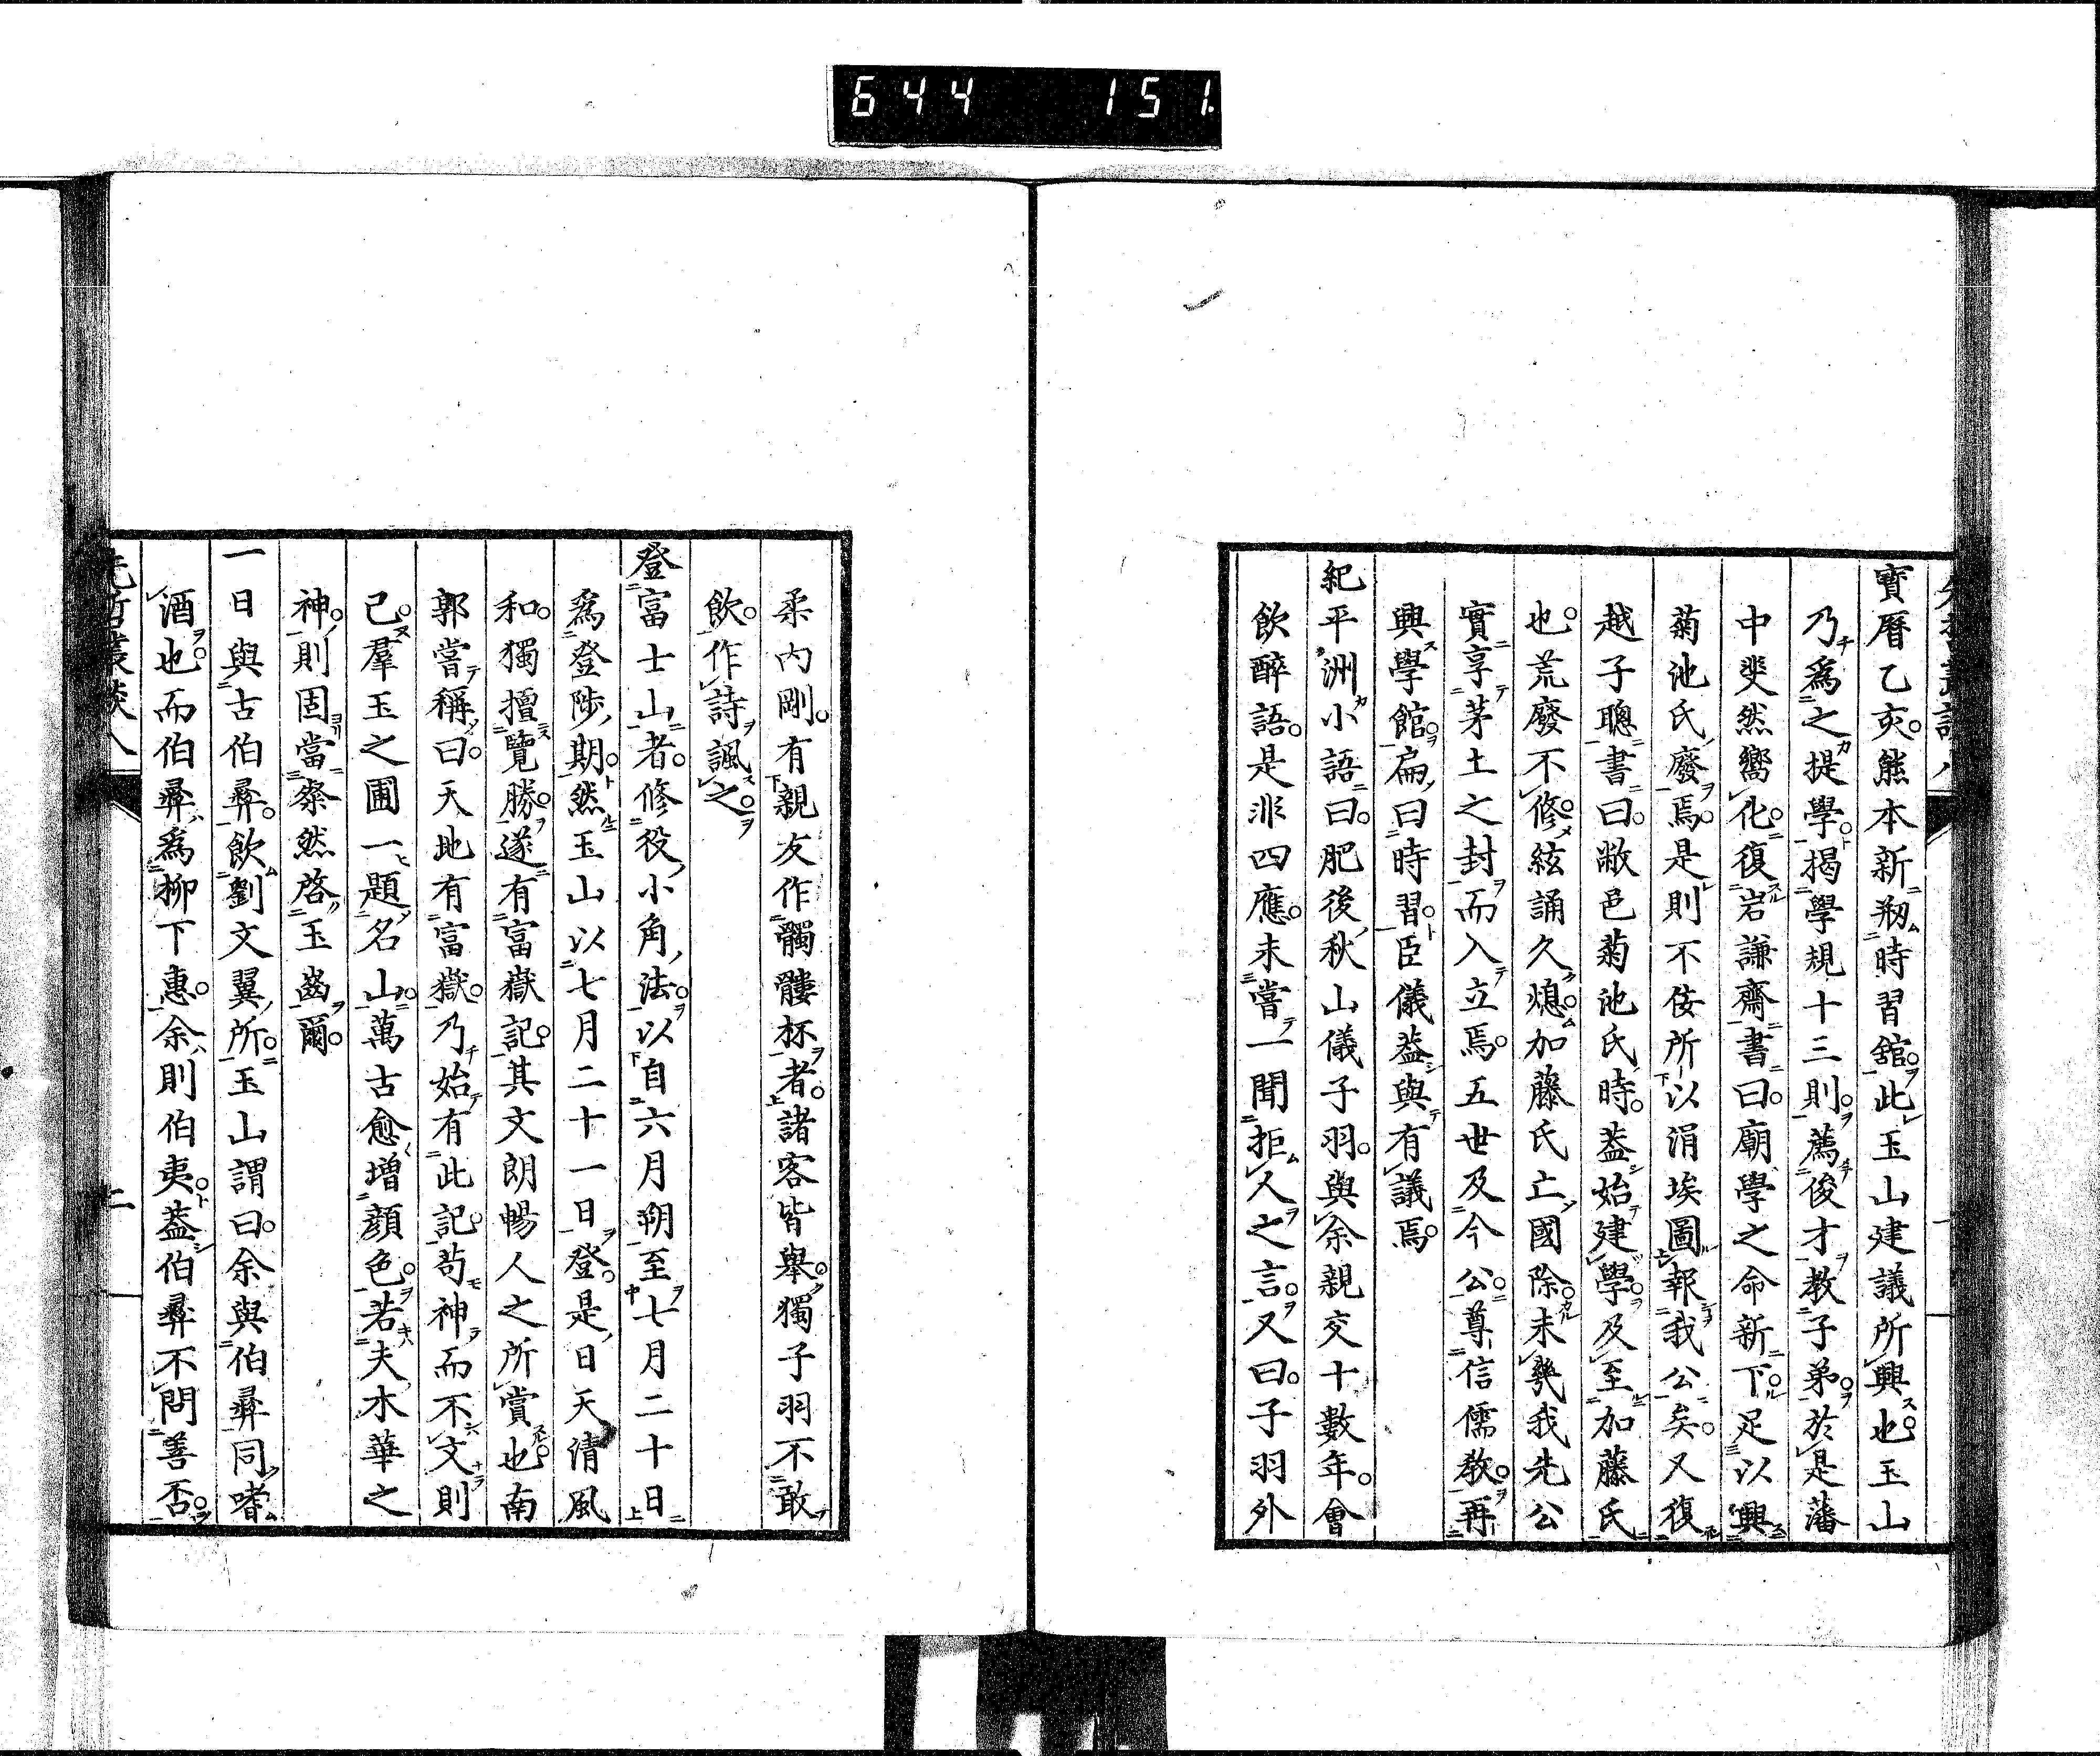 644 151
寶曆乙亥熊本新剏時習舘此玉山建議所興也玉山
乃爲之提學揭學規十三則薦俊才教子弟於是藩
中斐然嚮化復岩謙齋書曰廟學之命新下足以興
菊池氏廢焉是則不佞所以涓埃圖報我公矣又復
越子聰書曰敝邑菊池氏時葢始建學及至加藤氏
也荒廢不修絃誦久熄加藤氏亡國除未幾我先公
實享茅土之封而入立焉五世及今公尊信儒教再
興學館扁曰時習臣儀葢與有議焉
紀平洲小語曰肥後秋山儀子羽與余親交十數年會
飲醉語是非四應未嘗一聞拒人之言又曰子羽外
柔內剛有親友作髑髏杯者諸客皆舉獨子羽不敢
飲作詩諷之
登富士山者修役小角法以自六月朔至七月二十日
爲登陟期然玉山以七月二十一日登是日天清風
和獨擅覽勝遂有富嶽記其文朗暢人之所賞也南
郭嘗稱曰天地有富嶽乃始有此記苟神而不文則
已羣玉之圃一題名山萬古愈增顔色若夫木華之
神則固當粲然啓玉齒爾
一日與古伯彝飲劉文翼所玉山謂曰余與伯彝同嗜
酒也而伯彝爲柳下惠余則伯夷葢伯彝不問善否
先哲叢談八
二